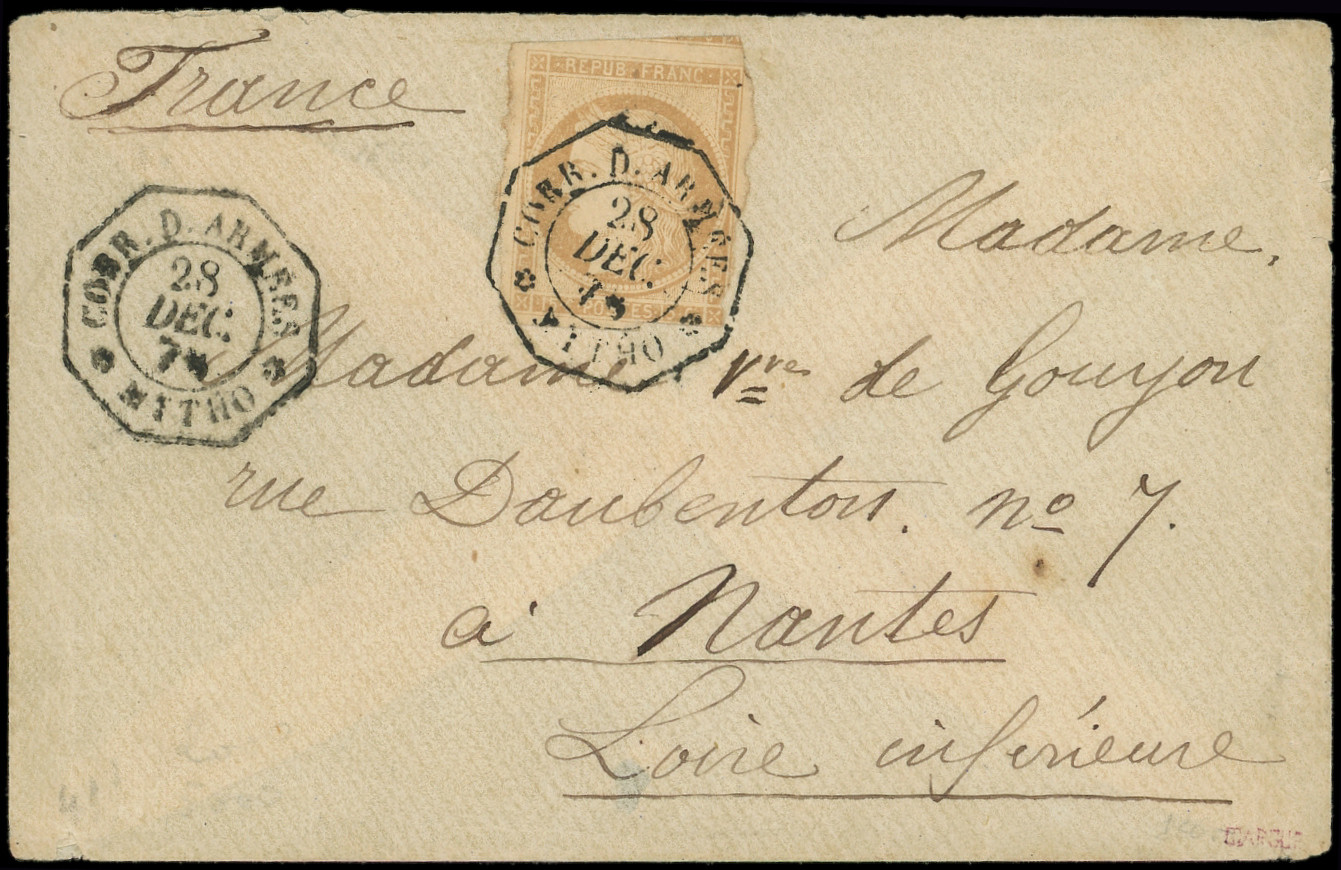 France
REPUB·FRANC·
CORR. D. ARMÉES
28
DEC.
MYTHO
POSTES
CORR. D. ARMÉES
28
DEC.
MYTHO
Madame,
Madame Vve de Gouyon
rue Daubenton. no 7.
à Nantes
Loire inférieure